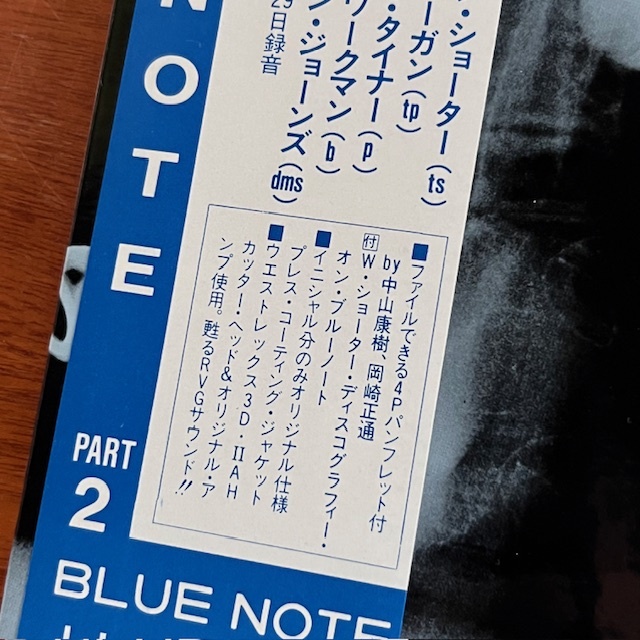 NOTE
・ショーター(ts)
ーガン(tp)
・タイナー(p)
ワークマン(b)
ン・ジョーンズ(dms)
29日録音
■ファイルできる4Pパンフレット付
by中山康樹、岡崎正通
付W・ショーター・ディスコグラフィー・
オン・ブルーノート
■イニシャル分のみオリジナル仕様
プレス・コーティング・ジャケット
■ウエストレックス3D・IIAH
カッター・ヘッド&オリジナル・ア
ンプ使用。甦るRVGサウンド!!
PART
2
BLUE NOTE